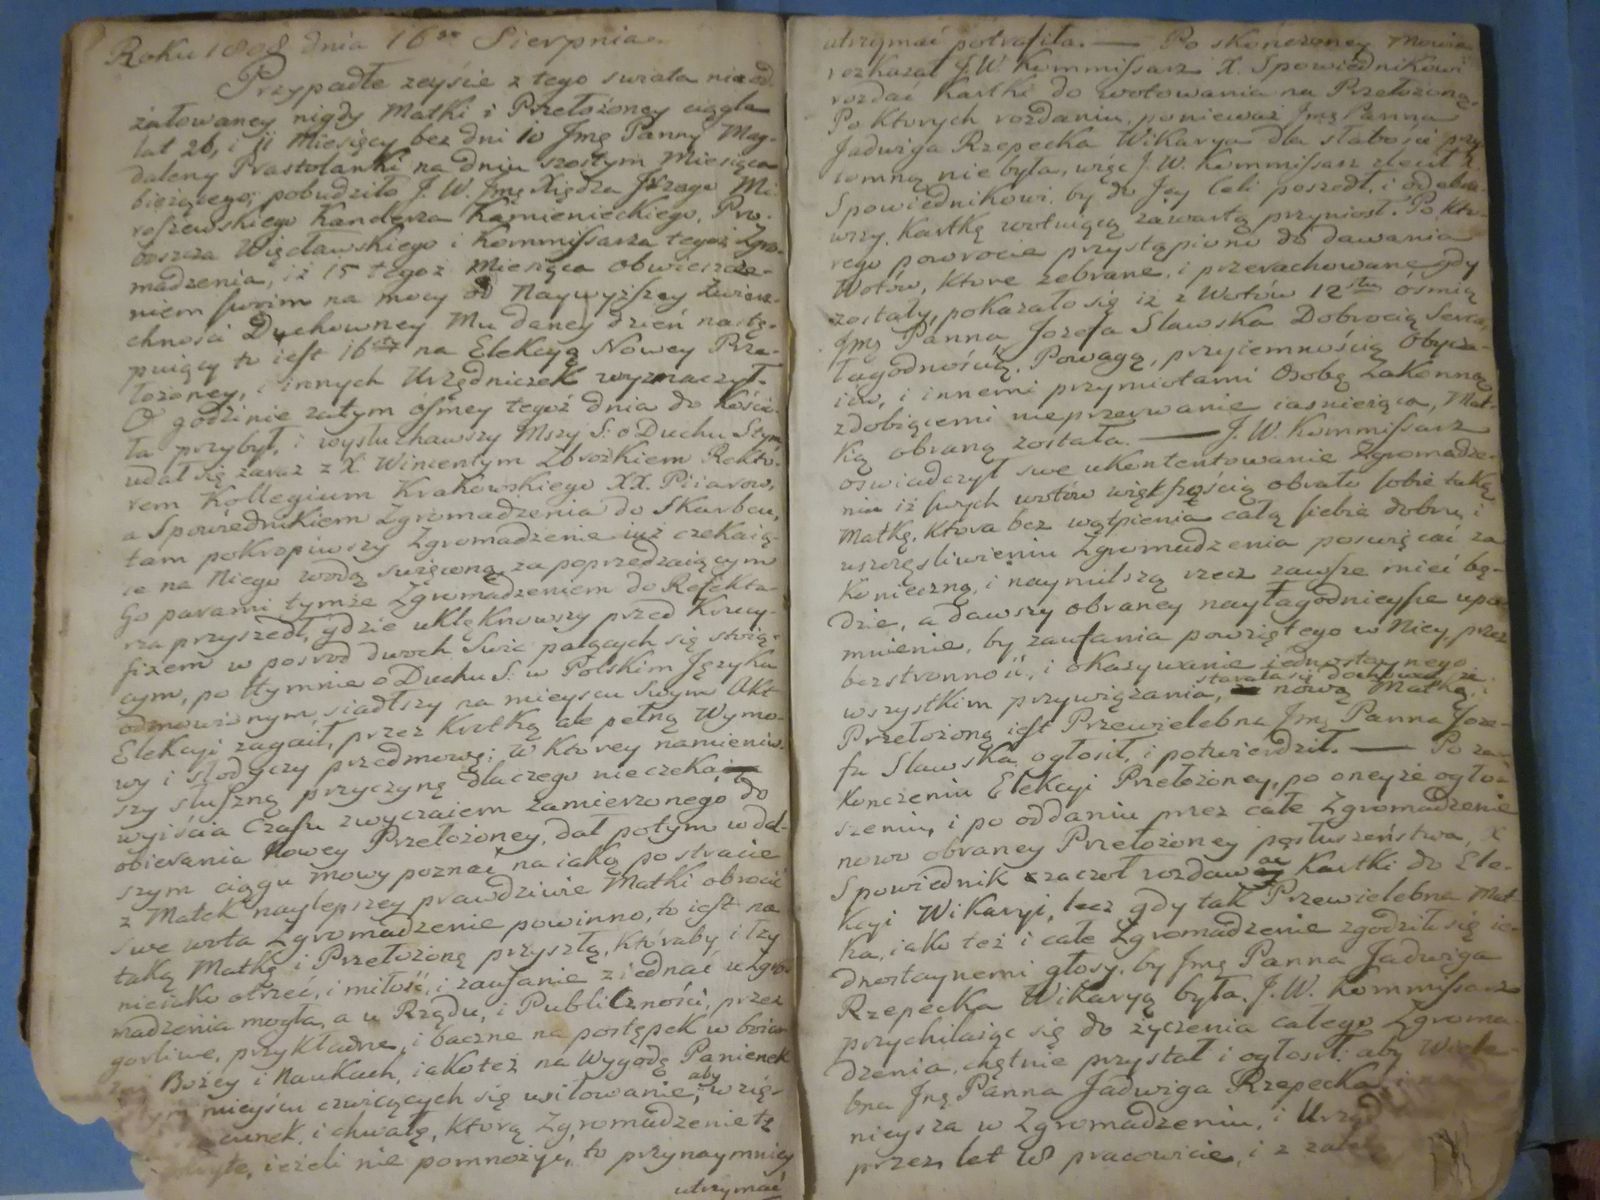 Roku 1808 dnia 16go Sierpnia.
Przypadłe zeyście z tego swiata nieod-
żałowaney nigdy Matki i Przełożoney ciągle
lat 26, i 11 Miesięcy bez dni 10 Jmę Panny Mag-
daleny Prastolanki na dniu szostym Miesiąca
bieżącego, pobudziło J. W. Jmę Xiędza Jgzego Mi-
roszewskiego Kanclerza Kamienieckiego, Pro-
boszcza Więcławskiego i Kommissarza tegoż Zgro-
madzenia, iż 15 tegoż Miesiąca obwieszcze-
niem swoim na mocy od Naywyższey Zwierz-
chności Duchowney Mu daney dzień nastę-
puiący to iest 16sty na Elekcyą Nowey Prze-
łożoney, i innych Urzędniczek wyznaczył.
O godzinie zatym ósmey tegoż dnia do Kościo-
ła przybył, i wysłuchawszy Mszy S: o Duchu Stym,
udał się zaraz z X. Wincentym Zbrożkiem Rekto-
rem Kollegium Krakowskiego XX. Piiarow,
a Spowiednikiem Zgromadzenia do Skarbcu,
tam pokropiwszy Zgromadzenie iuż czekaią-
ce na Niego wodą święconą, za poprzedzaiącym
Go parami tymże Zgromadzeniem do Refekta-
rza przyszedł, gdzie uklęknowszy przed Krucy-
fixem w posrod dwoch Swic palących się stoią-
cym, po Hymnie o Duchu S: w Polskim Języku
odmowionym, siadłszy na mieyscu swym Akt
Elekcyi zagaił, przez krotką ale pełną Wymo-
wy i słodyczy przedmowę; w ktorey namieniw-
szy słuszną przyczynę dlaczego nieczekaią
wyiścia Czasu zwyczaiem zamierzonego do
obierania Nowey Przełożoney, dał potym w dal-
szym ciągu mowy poznać, na iaką po stracie
z Matek naylepszey prawdziwie Matki obrocić
swe wota Zgromadzenie powinno, to iest na
taką Matkę i Przełożoną przyszłą, któraby i łzy
nieiako otrzeć, i miłość, i zaufanie ziednać u Zgro-
madzenia mogła, a u Rządu, i Publiczności, przez
gorliwe, przykładne, i baczne na postępek w boiaź-
Bożey i Naukach, iako też na Wygodę Panienek
mieyscu cwiczących się usiłowanie, aby wzię-
i chwałę, ktorą Zgromadzenie te
ieżeli nie pomnożyć, to przynaymniey
utrzymać
utrzymać potrafiła. — Po skonczoney Mowie
rozkazał J. W. Kommissarz X. Spowiednikowi
rozdać kartki do wotowania na Przełożoną.
Po ktorych rozdaniu, ponieważ Jmę Panna
Jadwiga Rzepecka Wikarya dla słabości przy-
tomną nie była, więc J. W. Kommissarz zlecił X.
Spowiednikowi, by do Jey Celi poszedł, i odebra-
wszy Kartkę wotuiącą zawartą przyniosł. Po kto-
rego powrocie przystąpiono do dawania
Wotów, ktore zebrane, i przerachowane gdy
zostały, pokazało się iż z Wotów 12stu ośmią
Jmę Panna Jozefa Sławska Dobrocią Serca,
łagodnością, Powagą, przyiemnością Obycza-
iów, i innemi przymiotami Osobę Zakonną
zdobiącemi nieprzerwanie iaśnieiąca, Mat-
ką obraną została. — J. W. Kommissarz
oświadczył swe ukontentowanie Zgromadze-
niu iż swych wotów większością obrało sobie taką
Matkę, ktora bez wątpienia całą siebie dobru i
uszczęśliwieniu Zgromadzenia poswięcać za
Konieczną, i naymilszą rzecz zawsze mieć bę-
dzie, a dawszy obraney nayłagodnieysze upo-
mnienie, by zaufania powziętego w Niey, przez
bezstronność, i okazywanie iednostaynego
wszystkim przywiązania, starała się dochować, że
nową Matką, i
Przełożoną iest Przewielebna Jmę Panna Joze-
fa Sławska, ogłosił, i potwierdził. — Po za-
konczeniu Elekcyi Przełożoney, po oneyże ogło-
szeniu, i po oddaniu przez całe Zgromadzenie
nowo obraney Przełożoney posłuszeństwa, X
Spowiednik zaczoł rozdawać Kartki do Ele-
kcyi Wikaryi, lecz gdy tak Przewielebna Mat-
ka, iako też i całe Zgromadzenie zgodziło się ie-
dnostaynemi głosy, by Jmę Panna Jadwiga
Rzepecka Wikaryą była, J. W. Kommissarz
przychilaiąc się do życzenia całego Zgroma-
dzenia, chętnie przystał i ogłosił: aby Wiele-
bna Jmę Panna Jadwiga Rzepecka
nieysza w Zgromadzeniu, i Urzę
przez let 18 pracowicie, i z zale